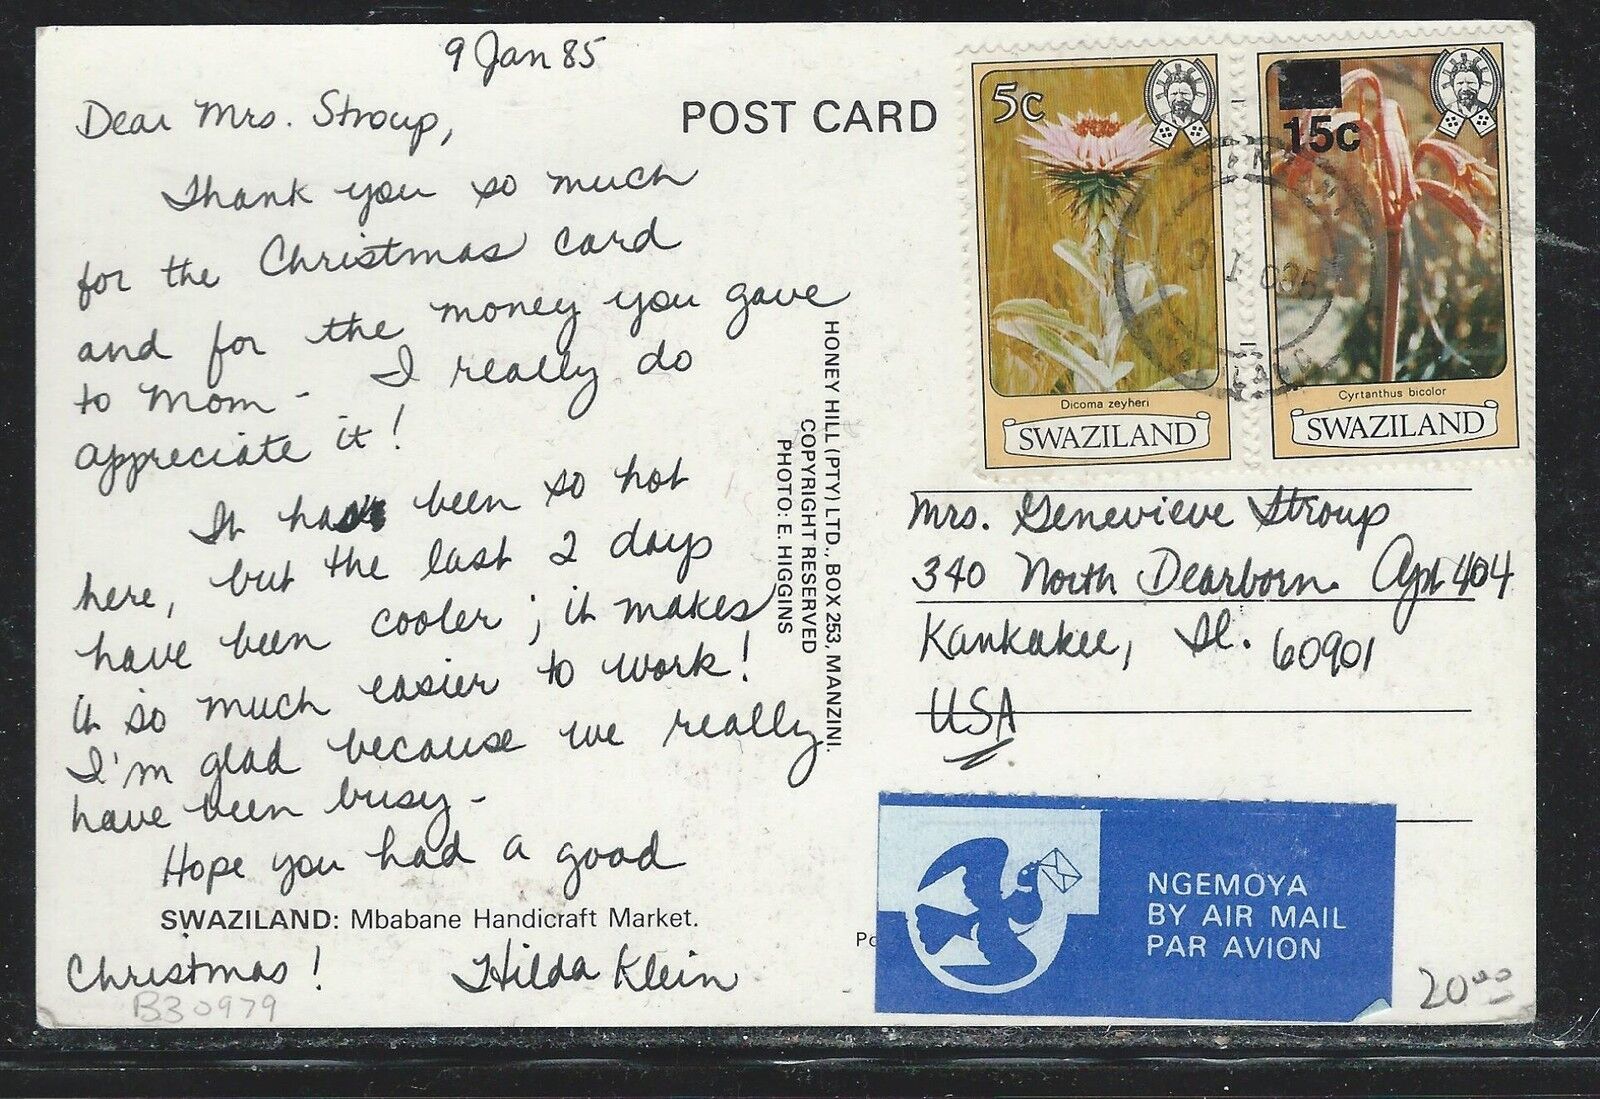 9 Jan 85
Dear Mrs. Stroup,
Thank you so much
for the Christmas card
and for the money you gave
to Mom - I really do
appreciate it!
It has been so hot
here, but the last 2 days
have been cooler; it makes
it so much easier to work!
I'm glad because we really
have been busy -
Hope you had a good
SWAZILAND: Mbabane Handicraft Market.
Christmas! Hilda Klein
B30979
POST CARD
HONEY HILL (PTY) LTD., BOX 253, MANZINI.
COPYRIGHT RESERVED
PHOTO: E. HIGGINS
5c
Dicoma zeyheri
SWAZILAND
15c
Cyrtanthus bicolor
SWAZILAND
Mrs. Genevieve Stroup
340 North Dearborn Apt 404
Kankakee, Il. 60901
USA
Po
NGEMOYA
BY AIR MAIL
PAR AVION
20.00